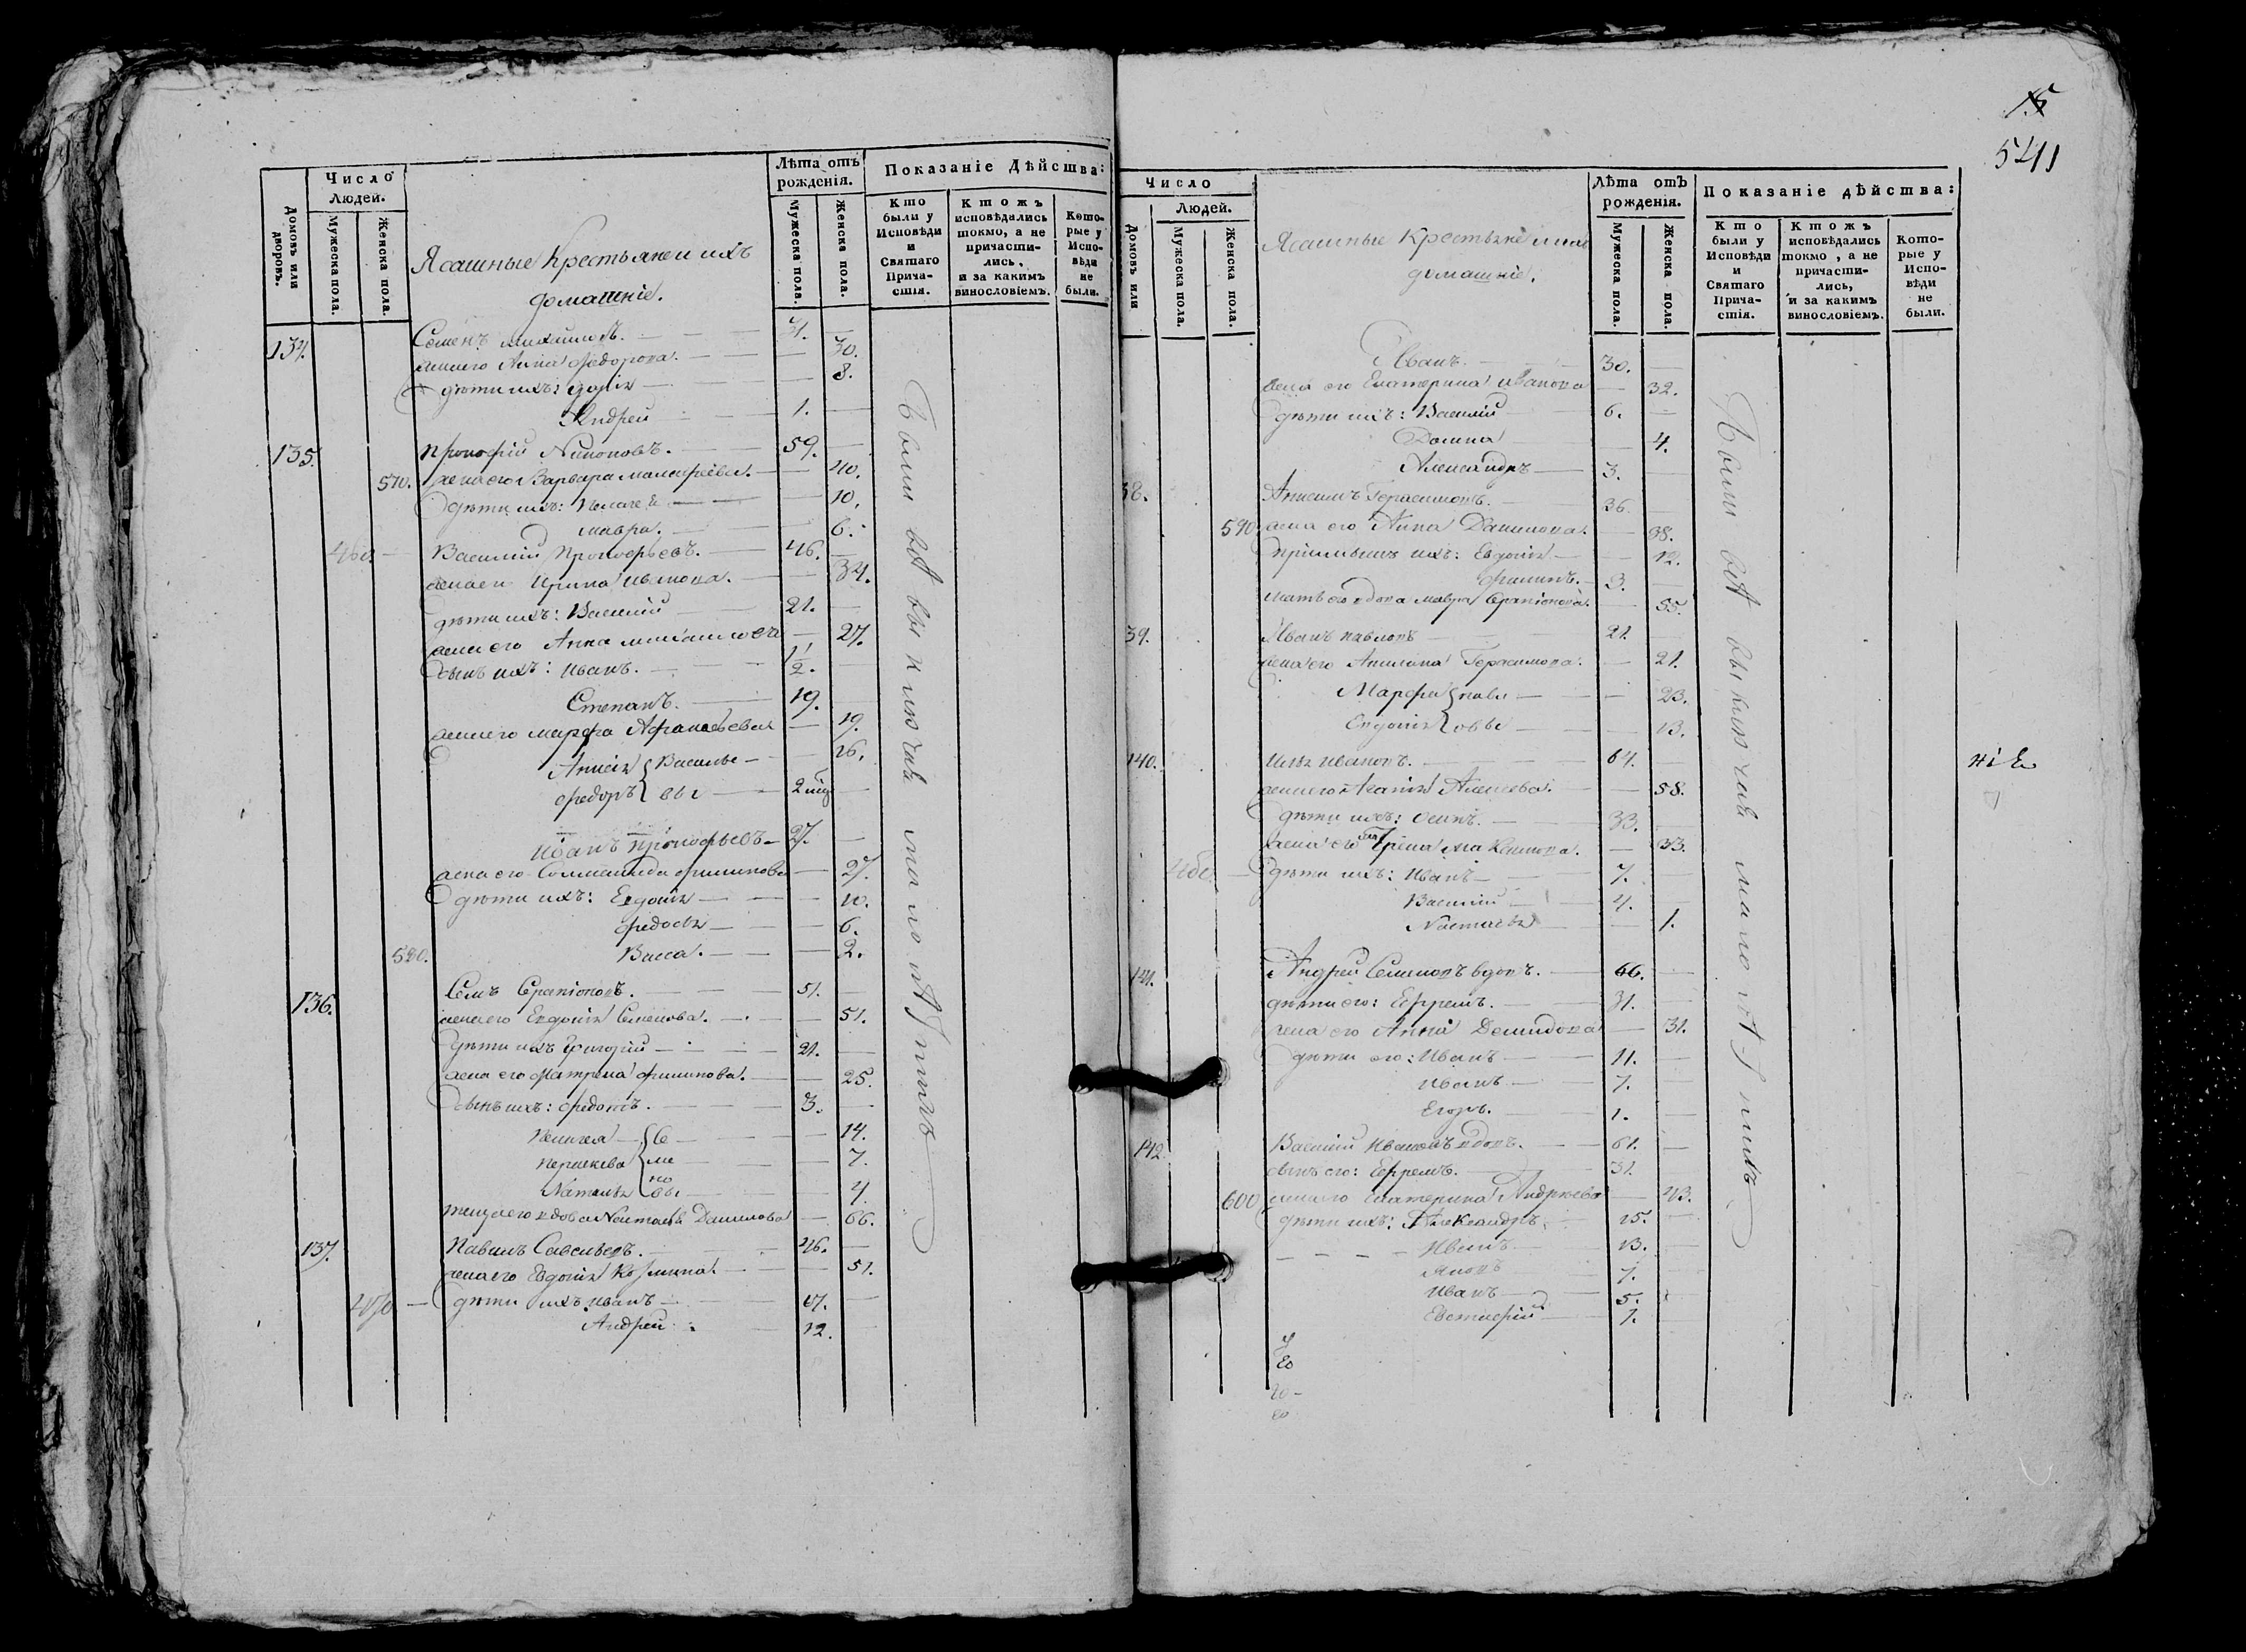 Число Людей.
Домовъ или дворовъ.
Мужеска пола.
Женска пола.
Лѣта отъ рожденія.
Мужеска пола.
Женска пола.
Показаніе Дѣйства:
Кто были у Исповѣди и Святаго Причастія.
Ктожъ исповѣдались токмо, а не причастились, и за какимъ винословіемъ.
Которые у Исповѣди не были.
Ясашные Крестьяне и ихъ
домашніе.
134. Семенъ 31.
жена его Анна Федорова. 30.
дѣти ихъ: Дарія 8.
Андрей 1.
135. Прокофій Никоновъ. 59.
570. жена его Варвара 40.
дѣти ихъ: Пелагея 10.
Мавра. 6.
Василий Прокофьевъ. 46.
жена его Ирина Иванова. 34.
дѣти ихъ: Василий 21.
жена его Анна 27.
сынъ ихъ: Иванъ. 1/2.
Степанъ. 19.
жена его Марфа Афанасьева 19.
Анисія Василье 16.
Федоръ вы 2
Иванъ Прокофьевъ 27.
жена его Филипова 27.
дѣти ихъ: Евдокія 10.
Федосья 6.
580. Васса. 2.
136. Серапіоновъ. 51.
жена его Евдокія Семенова. 51.
дѣти ихъ Григорий 21.
жена его Матрена Филипова. 25.
сынъ ихъ: Федотъ. 3.
Пелагея Се 14.
ме 7.
Наталья новы 4.
теща его вдова Настасья Данилова 66.
137. Павелъ Савельевъ. 46.
жена его Евдокія Козмина 51.
470 дѣти ихъ Иванъ 17.
Андрей 12.
Были всѣ выключая малолѣтнихъ
15
541
Число Людей.
Домовъ или
Мужеска пола.
Женска пола.
Лѣта отъ рожденія.
Мужеска пола.
Женска пола.
Показаніе дѣйства:
Кто были у Исповѣди и Святаго Причастія.
Ктожъ исповѣдались токмо, а не причастились, и за какимъ винословіемъ.
Которые у Исповѣди не были.
Ясашные Крестьяне и ихъ
домашніе.
Иванъ. 30.
жена его Екатерина Иванова 32.
дѣти ихъ: Василий 6.
Домна 4.
Александръ 3.
38. Герасимовъ. 36.
590 жена его Анна Данилова. 38.
ихъ: Евдокія 12.
Филипъ. 3.
Мать его вдова Мавра Серапіонова. 55.
39. Иванъ Павловъ 21.
жена его Акилина Герасимова. 21.
Марфа Павл 23.
Евдокія овы 13.
140. Илья Ивановъ. 64.
жена его Алексеева. 58.
дѣти ихъ: Осипъ. 33.
жена его 33.
дѣти ихъ: Иванъ 7.
Василий 4.
Настасья 1.
141. Андрей Семеновъ вдовъ. 66.
дѣти его: Ефремъ. 31.
жена его Анна Демидова 31.
дѣти его: Иванъ 11.
Иванъ 7.
Егоръ. 1.
142. Василий Ивановъ вдовъ. 61.
сынъ его: Ефремъ. 31.
600 жена его Екатерина Андреева 43.
дѣти ихъ: Александръ 15.
Иванъ 13.
Яковъ 7.
Иванъ 5.
Евстафий 1.
Были всѣ выключая малолѣтнихъ
ніе